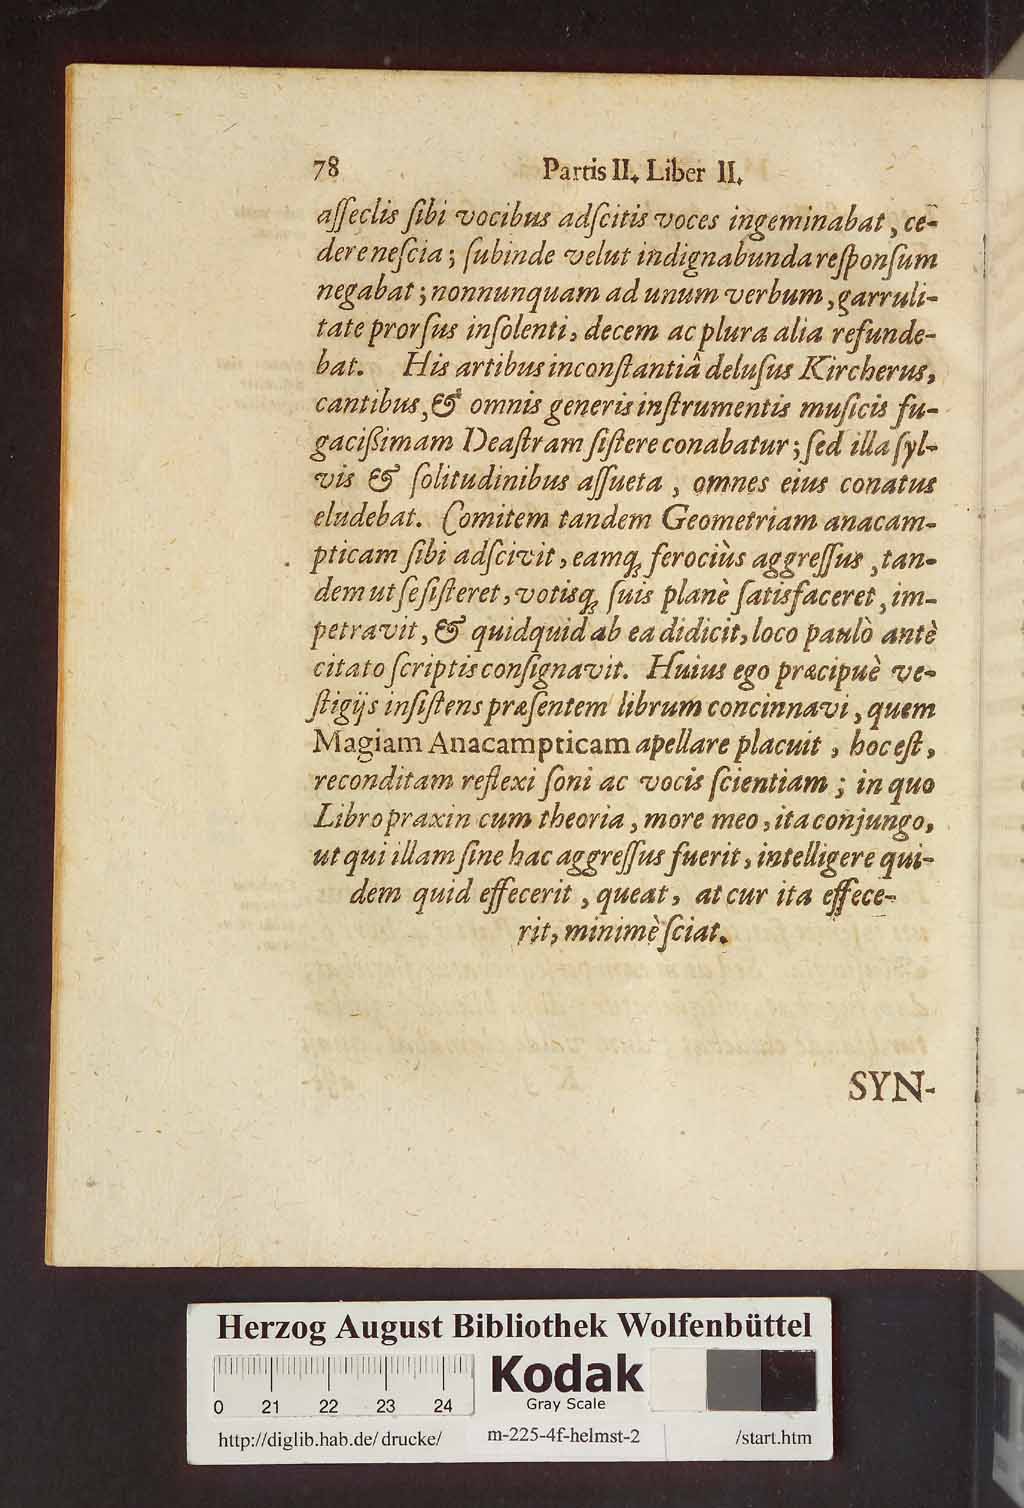 78 Partis II. Liber II.
aſſeclis ſibi vocibus adſcitis voces ingeminabat, ce-
dere neſcia; ſubinde velut indignabunda reſponſum
negabat; nonnunquam ad unum verbum, garruli-
tate prorſus inſolenti, decem ac plura alia refunde-
bat. His artibus inconſtantiâ deluſus Kircherus,
cantibus, & omnis generis inſtrumentis muſicis fu-
gacißimam Deaſtram ſiſtere conabatur; ſed illa ſyl-
vis & ſolitudinibus aſſueta, omnes eius conatus
eludebat. Comitem tandem Geometriam anacam-
pticam ſibi adſcivit, eamq́; ferociùs aggreſſus, tan-
dem ut ſe ſiſteret, votisq́; ſuis planè ſatisfaceret, im-
petravit, & quidquid ab ea didicit, loco paulò antè
citato ſcriptis conſignavit. Huius ego præcipuè ve-
ſtigijs inſiſtens præſentem librum concinnavi, quem
Magiam Anacampticam apellare placuit, hoc eſt,
reconditam reflexi ſoni ac vocis ſcientiam; in quo
Libro praxin cum theoria, more meo, ita conjungo,
ut qui illam ſine hac aggreſſus fuerit, intelligere qui-
dem quid effecerit, queat, at cur ita effece-
rit, minimè ſciat.
SYN-
Herzog August Bibliothek Wolfenbüttel
0 21 22 23 24
Kodak
Gray Scale
http://diglib.hab.de/drucke/ m-225-4f-helmst-2 /start.htm